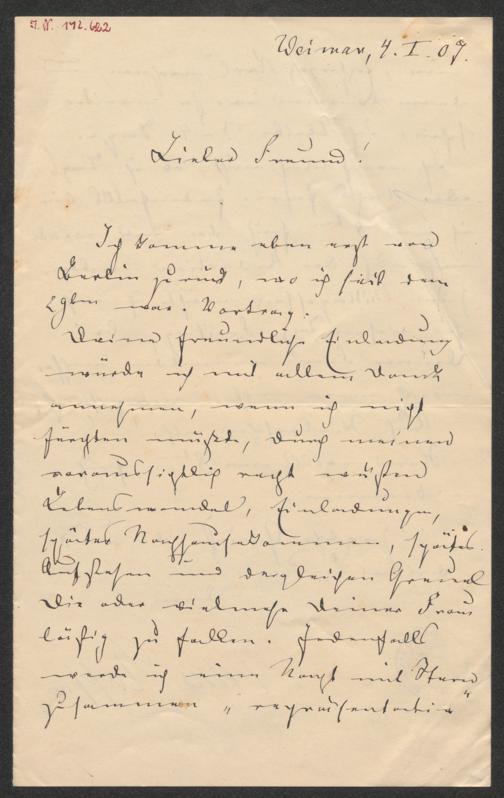 I. N. 142.622
Weimar, 4. I. 07.
Lieber Freund!
Ich komme eben erst von
Berlin zurück, wo ich seit dem
29ten war. Vortrag.
Deine freundliche Einladung
würde ich mit allem Dank
annehmen, wenn ich nicht
fürchten müßte, durch meinen
voraussichtlich recht wüsten
Lebenswandel, Einladungen,
spätes Nachhausekommen, spätes
Aufstehen und dergleichen Greuel
Dir oder vielmehr Deiner Frau
lästig zu fallen. Jedenfalls
werde ich eine Nacht mit
zusammen „repräsentativ"